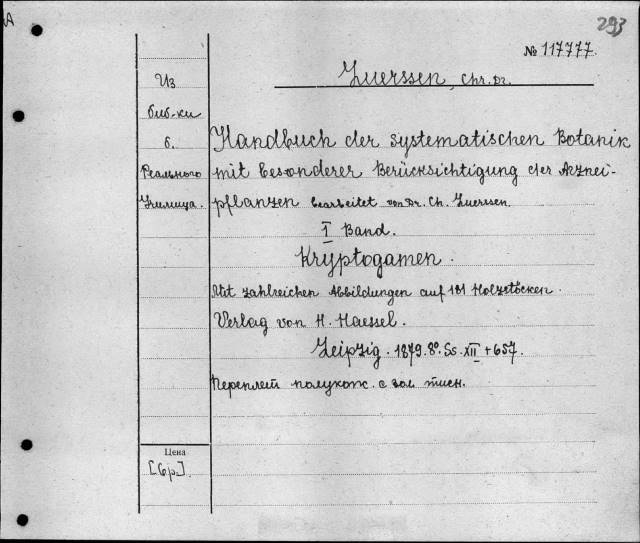 A
293
№ 117777.
Luerssen, Chr. Dr.
Из
биб-ки
б.
Реального
Училища.
Handbuch der systematischen Botanik
mit besonderer Berücksichtigung der Arznei-
pflanzen bearbeitet von Dr. Ch. Luerssen.
I Band.
Kryptogamen.
Mit zahlreichen Abbildungen auf 181 Holzstöcken.
Verlag von H. Haessel.
Leipzig. 1879. 8°. Ss. XII + 657.
Переплет полукож. с зол. тисн.
Цена
[6р.]